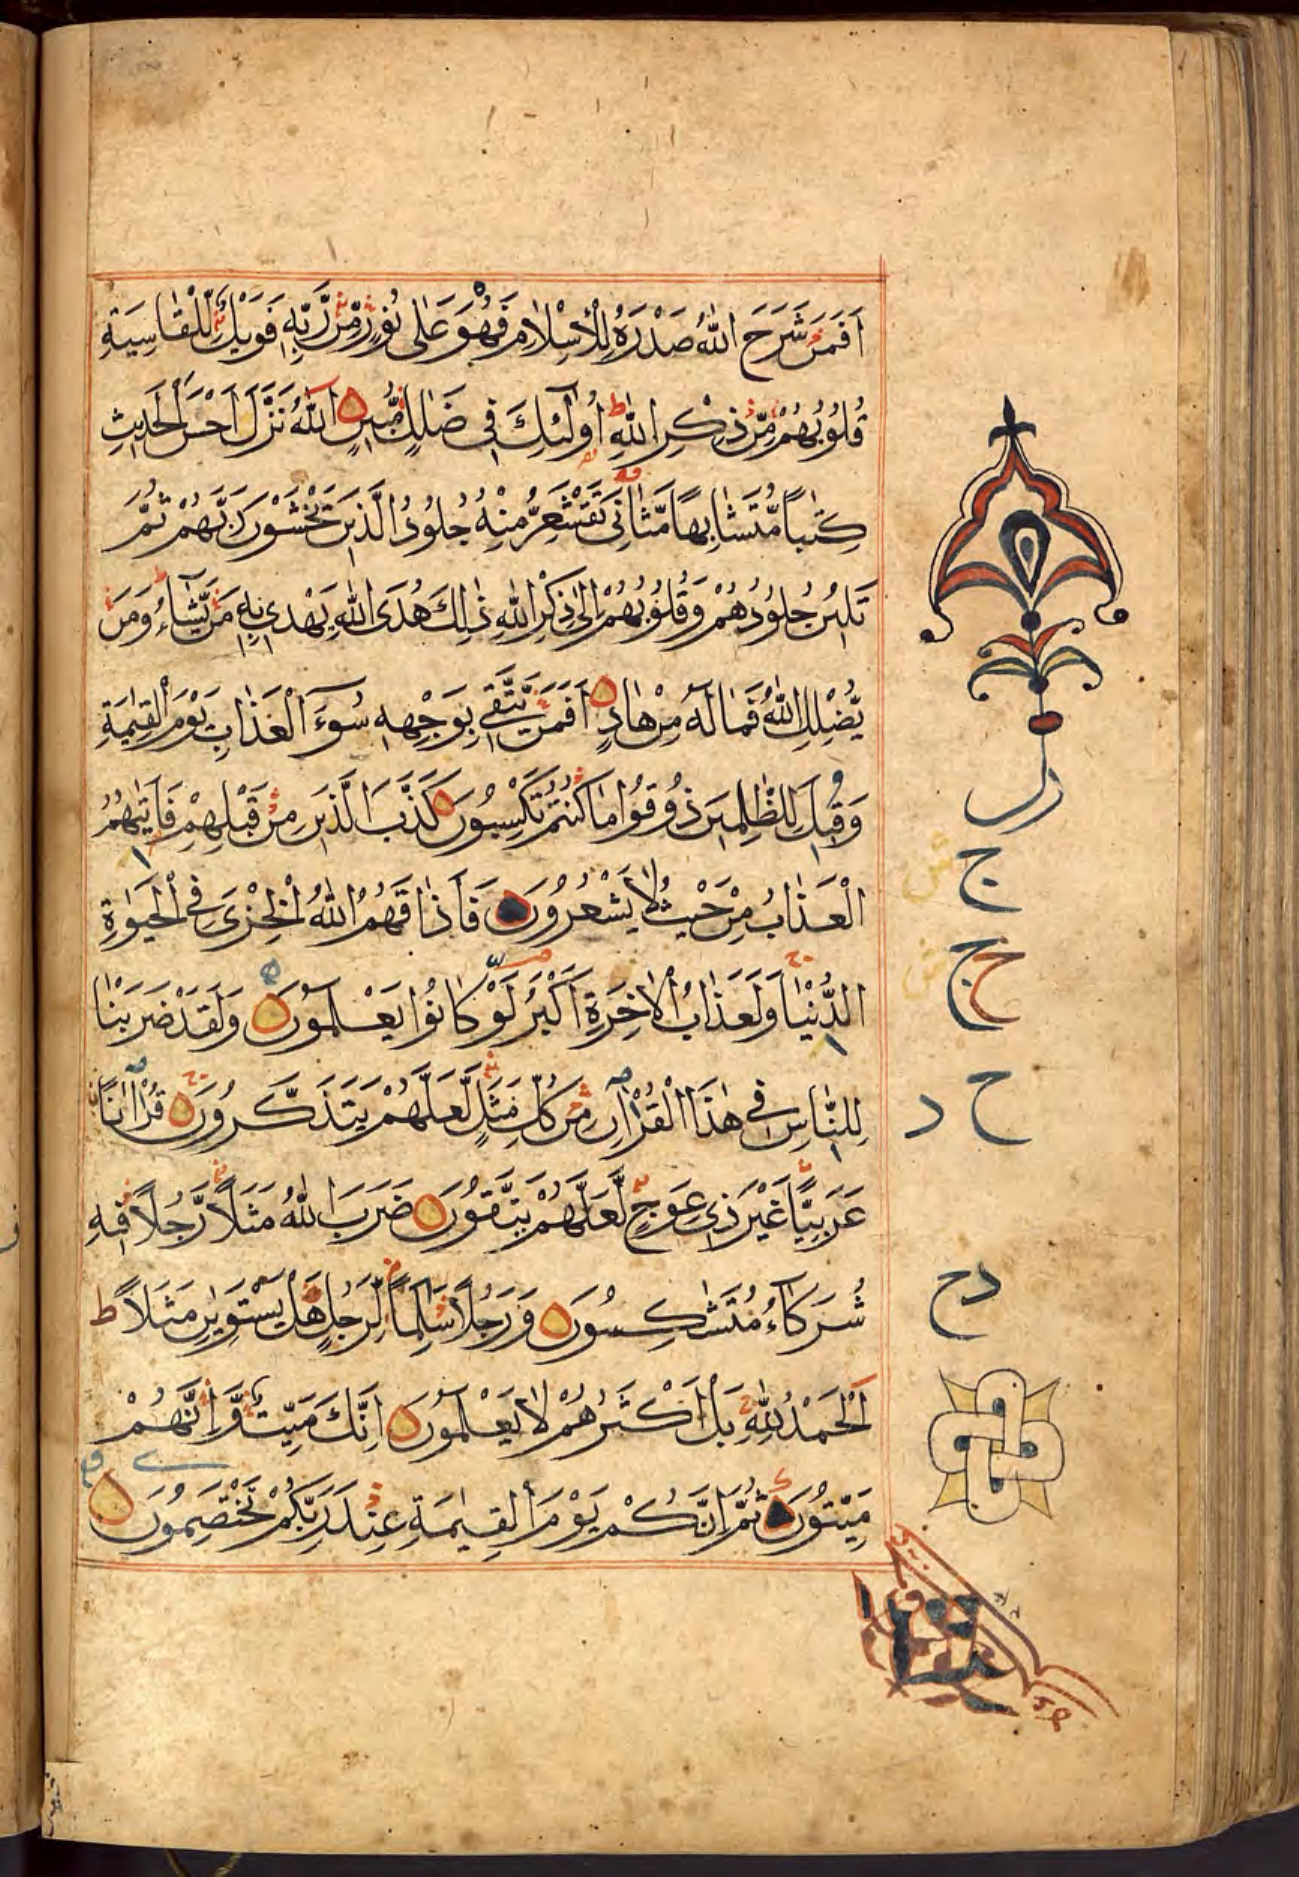 اَفَمَنْ شَرَحَ اللّٰهُ صَدْرَهُ لِلْاِسْلَامِ فَهُوَ عَلٰى نُوْرٍ مِّنْ رَّبِّهٖ فَوَيْلٌ لِّلْقٰسِيَةِ
قُلُوْبُهُمْ مِّنْ ذِكْرِ اللّٰهِ ط اُولٰٓئِكَ فِى ضَلٰلٍ مُّبِيْنٍ اَللّٰهُ نَزَّلَ اَحْسَنَ الْحَدِيْثِ
كِتٰبًا مُّتَشَابِهًا مَّثَانِىَ تَقْشَعِرُّ مِنْهُ جُلُوْدُ الَّذِيْنَ يَخْشَوْنَ رَبَّهُمْ ثُمَّ
تَلِيْنُ جُلُوْدُهُمْ وَقُلُوْبُهُمْ اِلٰى ذِكْرِ اللّٰهِ ذٰلِكَ هُدَى اللّٰهِ يَهْدِىْ بِهٖ مَنْ يَّشَآءُ ط وَمَنْ
يُّضْلِلِ اللّٰهُ فَمَا لَهٗ مِنْ هَادٍ اَفَمَنْ يَّتَّقِىْ بِوَجْهِهٖ سُوْٓءَ الْعَذَابِ يَوْمَ الْقِيٰمَةِ
وَقِيْلَ لِلظّٰلِمِيْنَ ذُوْقُوْا مَا كُنْتُمْ تَكْسِبُوْنَ كَذَّبَ الَّذِيْنَ مِنْ قَبْلِهِمْ فَاَتٰىهُمُ
الْعَذَابُ مِنْ حَيْثُ لَا يَشْعُرُوْنَ فَاَذَاقَهُمُ اللّٰهُ الْخِزْىَ فِى الْحَيٰوةِ
الدُّنْيَا وَلَعَذَابُ الْاٰخِرَةِ اَكْبَرُ لَوْ كَانُوْا يَعْلَمُوْنَ وَلَقَدْ ضَرَبْنَا
لِلنَّاسِ فِىْ هٰذَا الْقُرْاٰنِ مِنْ كُلِّ مَثَلٍ لَّعَلَّهُمْ يَتَذَكَّرُوْنَ قُرْاٰنًا
عَرَبِيًّا غَيْرَ ذِىْ عِوَجٍ لَّعَلَّهُمْ يَتَّقُوْنَ ضَرَبَ اللّٰهُ مَثَلًا رَّجُلًا فِيْهِ
شُرَكَآءُ مُتَشٰكِسُوْنَ وَرَجُلًا سَلَمًا لِّرَجُلٍ هَلْ يَسْتَوِيٰنِ مَثَلًا ط
اَلْحَمْدُ لِلّٰهِ بَلْ اَكْثَرُهُمْ لَا يَعْلَمُوْنَ اِنَّكَ مَيِّتٌ وَّاِنَّهُمْ
مَّيِّتُوْنَ ثُمَّ اِنَّكُمْ يَوْمَ الْقِيٰمَةِ عِنْدَ رَبِّكُمْ تَخْتَصِمُوْنَ
ج
ج ح
ح د
دح